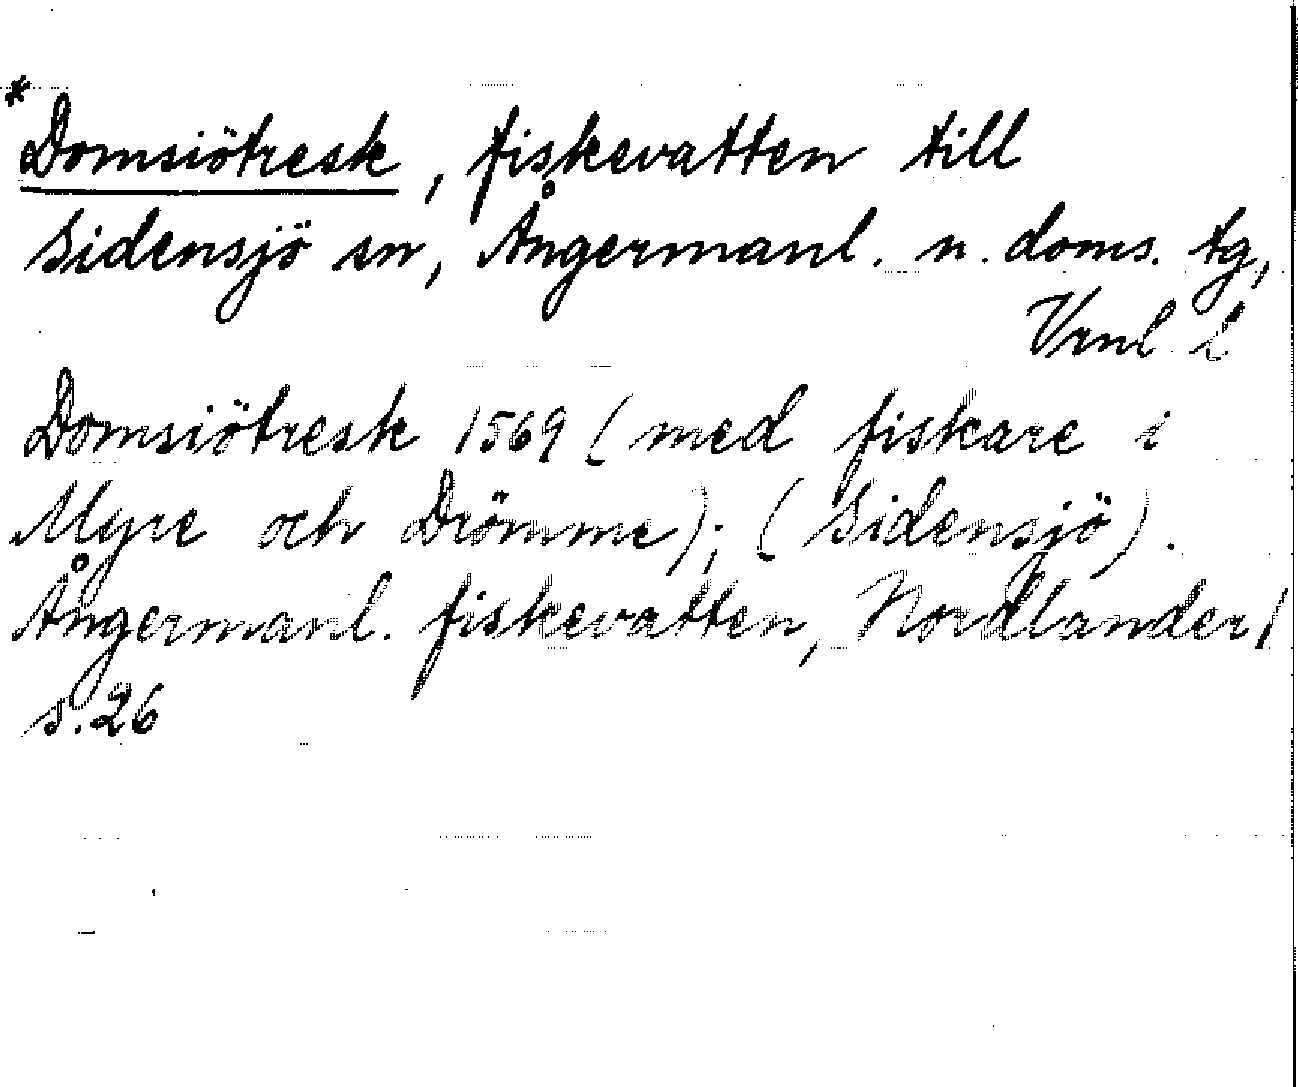 *Domsiötresk, fiskevatten till
Sidensjö sn, Ångermanl. n. doms. tg,
Vrnl. l
Domsiötresk 1569 (med fiskare i
Myre och Drömme); (Sidensjö).
Ångermanl. fiskevatten, Nordlander,
s. 26